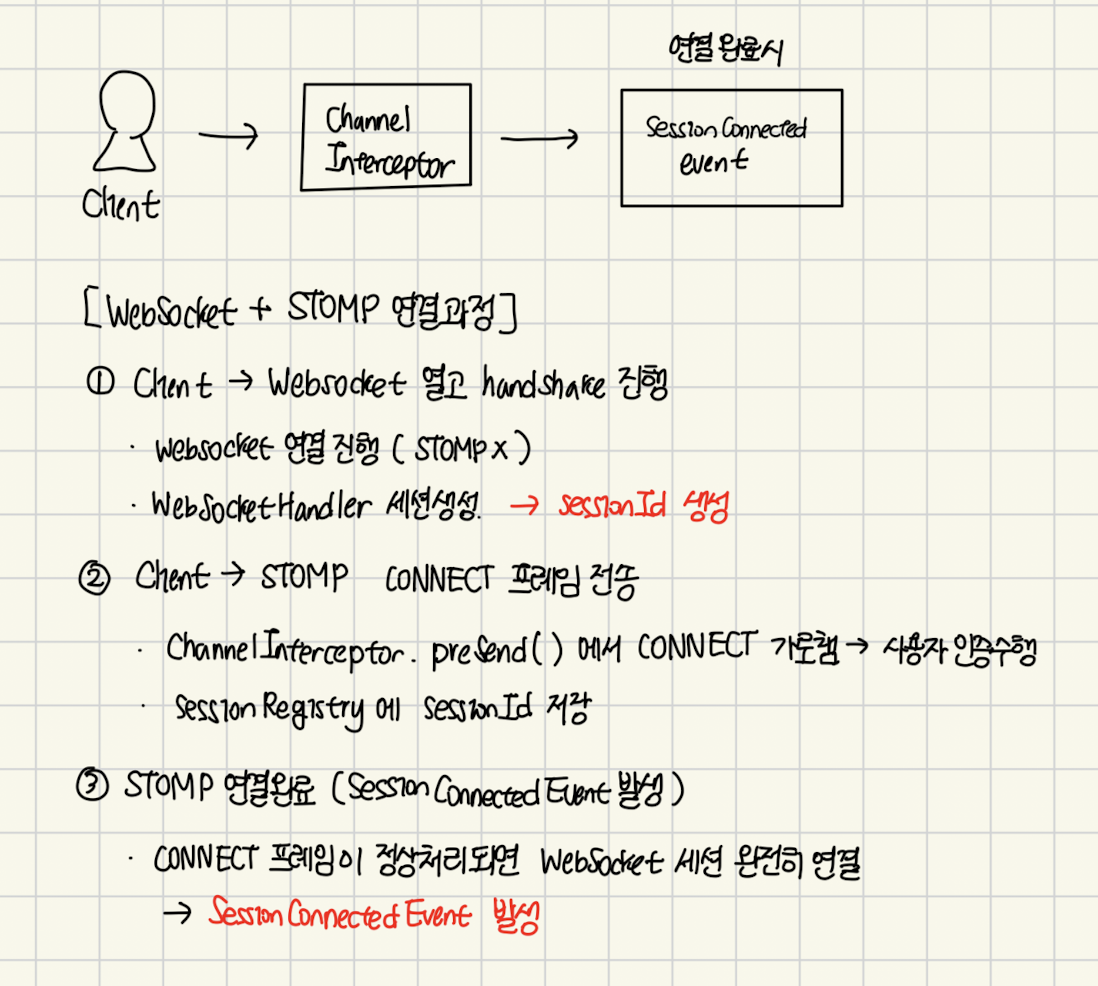 연결 완료시
Client
Channel
Interceptor
Session Connected
event
[WebSocket + STOMP 연결과정]
① Client → Websocket 열고 handshake 진행
· Websocket 연결 진행 ( STOMP X )
· WebSocketHandler 세션생성. → sessionId 생성
② Client → STOMP CONNECT 프레임 전송
· ChannelInterceptor. preSend( ) 에서 CONNECT 가로챔 → 사용자 인증수행
· Session Registry 에 sessionId 저장
③ STOMP 연결완료 (Session Connected Event 발생)
· CONNECT 프레임이 정상처리되면 WebSocket 세션 완전히 연결
→ Session Connected Event 발생